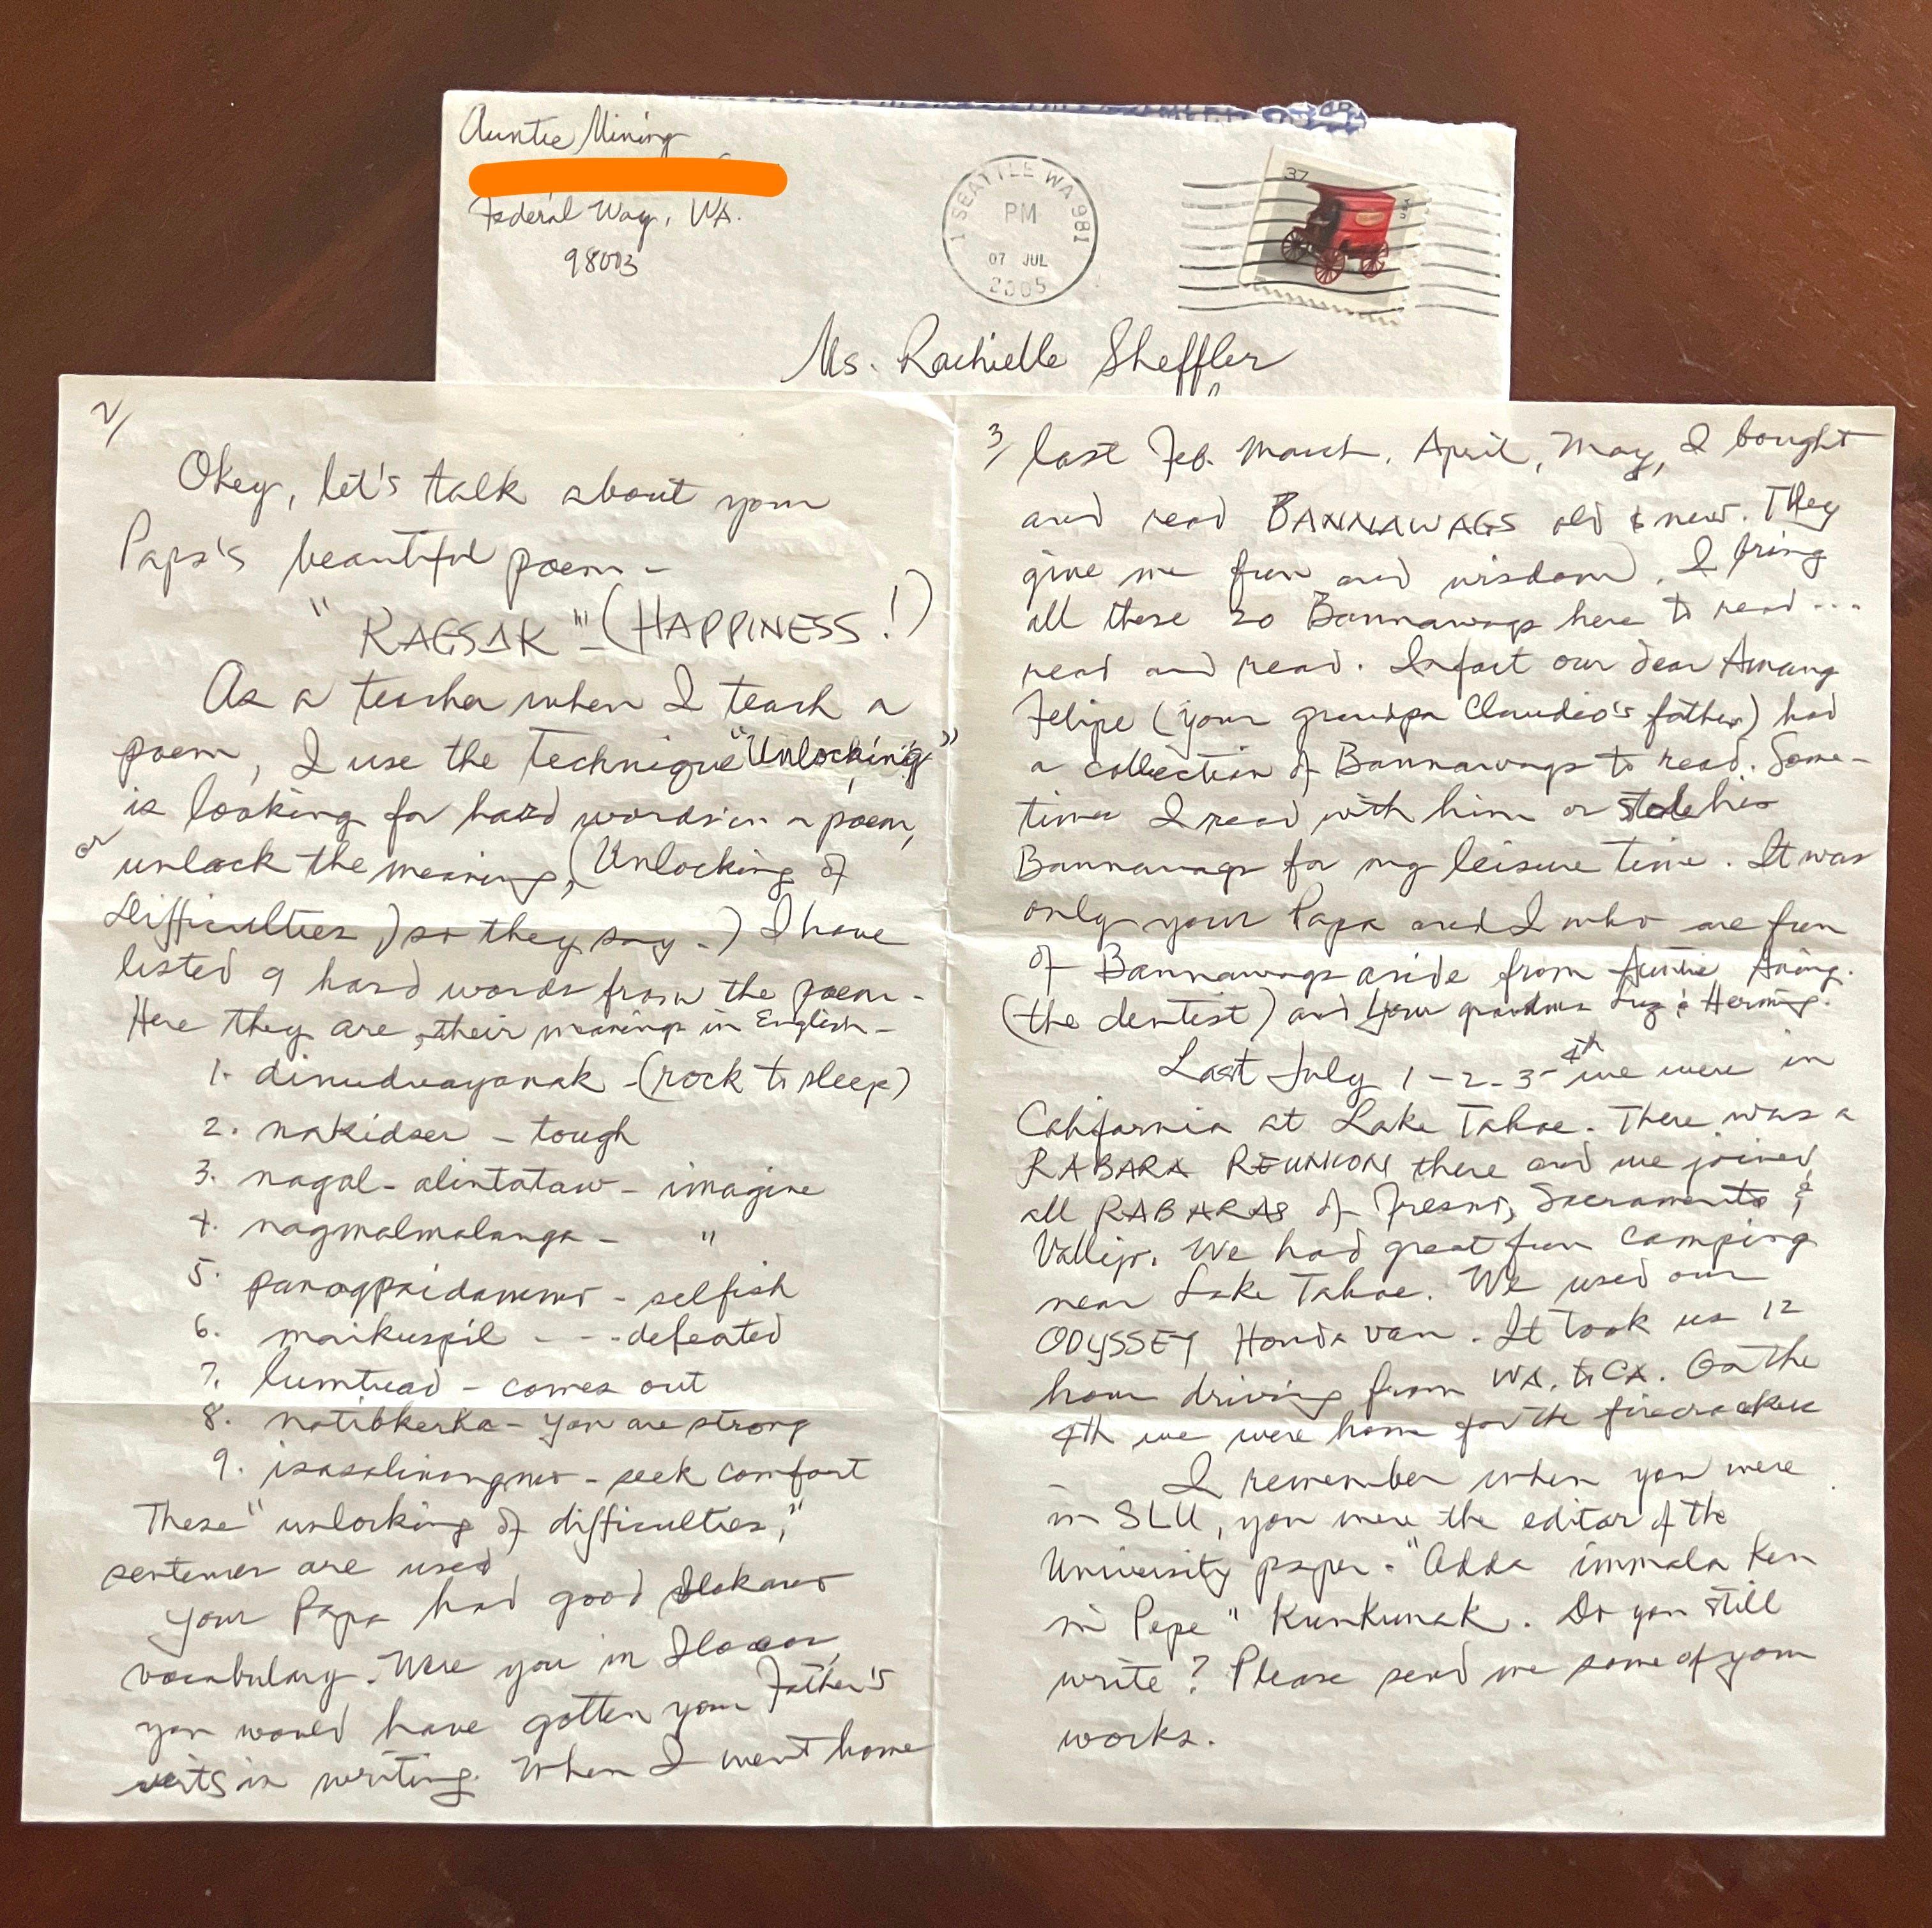 Auntie Mining
Federal Way, WA.
98003
SEATTLE WA 981
PM
07 JUL
2005
37
USA
Ms. Rachielle Sheffler
2/
Okey, let's talk about your
Papa's beautiful poem -
"RAGSAK" - (HAPPINESS!)
As a teacher when I teach a
poem, I use the technique "Unlocking"
is looking for hard words in a poem,
or unlock the meaning, (Unlocking of
Difficulties) so they say -) I have
listed 9 hard words from the poem -
Here they are, their meanings in English -
1. dinudwayanak - (rock to sleep)
2. nakidser - tough
3. nagal-alintataw - imagine
4. nagmalmalanga - "
5. panagpaidammo - selfish
6. maikuspil - - - defeated
7. lumtuad - comes out
8. natibkerka - you are strong
9. isasalinongmo - seek comfort
These "unlocking of difficulties,"
sentences are used
Your Papa had good Ilokano
vocabulary. Were you in Ilocos,
you would have gotten your Father's
wits in writing. When I went home
3/ last Feb. March, April, May, I bought
and read BANNAWAGS old & new. They
give me fun and wisdom. I bring
all these 20 Bannawags here to read ...
read and read. Infact our dear Amang
Felipe (your grandpa Claudio's father) had
a collection of Bannawags to read. Some-
times I read with him or stole his
Bannawags for my leisure time. It was
only your Papa and I who are fun
of Bannawags aside from Auntie
(the dentist) and your grandma Luz & Herming.
Last July 1-2-3-4th we were in
California at Lake Tahoe. There was a
RABARA REUNION there and we joined
all RABARAS of Fresno, Sacramento &
Vallejo. We had great fun camping
near Lake Tahoe. We used our
ODYSSEY Honda van. It took us 12
hour driving from WA. to CA. On the
4th we were home for the firecrackers
I remember when you were
in SLU, you were the editor of the
University paper. "Adda immala ken
ni Pepe" Kunkunak. Do you still
write? Please send me some of your
works.